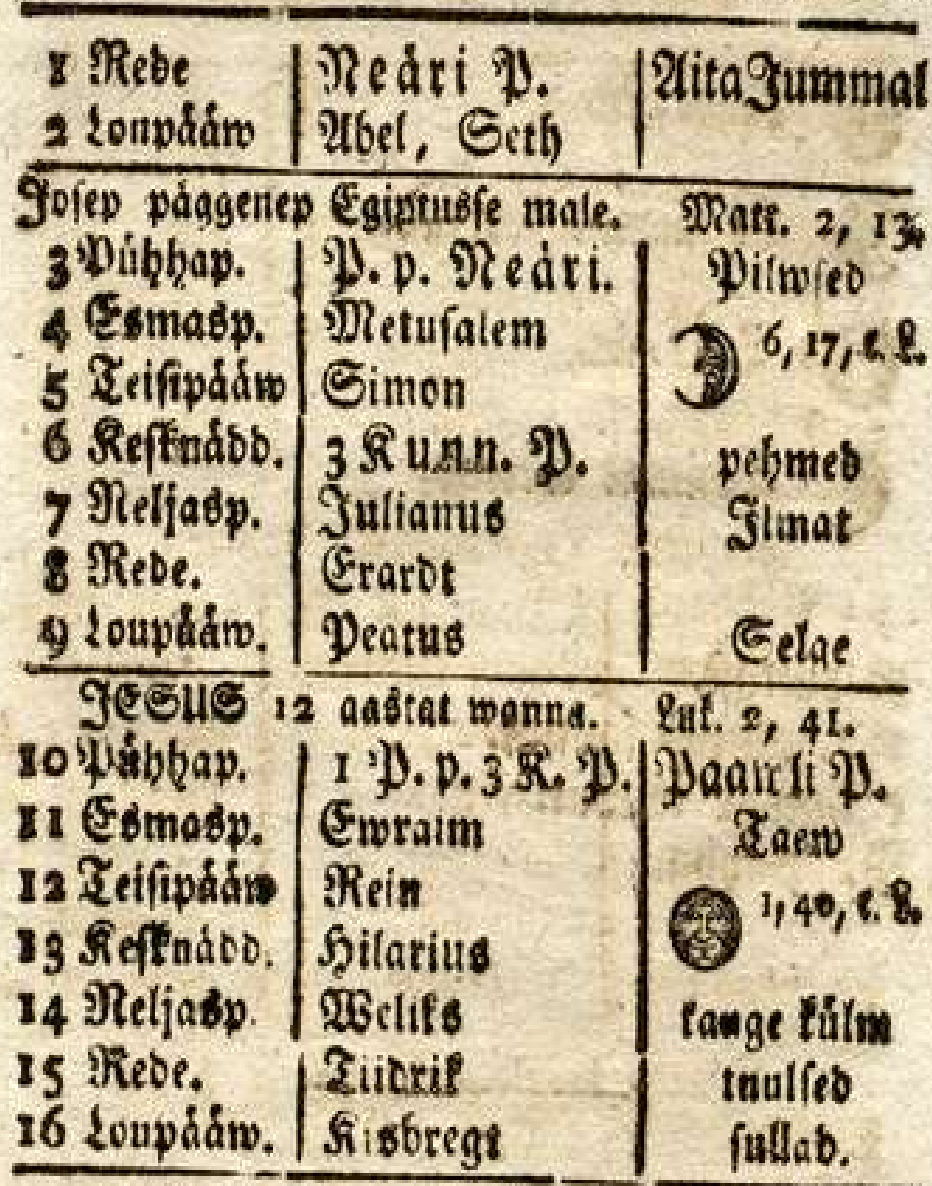 1 Rede Neäri P. Aita Jummal
2 Loupääw Abel, Seth
Josep päggenep Egiptusse male. Matt. 2, 13.
3 Pühhap. P. p. Neäri. Pilwsed
4 Esmasp. Metusalem 6, 17, e. L.
5 Teisipääw Simon
6 Kesknädd. 3 Kunn. P. pehmed
7 Neljasp. Julianus Ilmat
8 Rede. Erardt
9 Loupääw. Peatus Selge
JESUS 12 aastat wanna. Luk. 2, 41.
10 Pühhap. 1 P. p. 3 K. P. Paawli P.
11 Esmasp. Ewraim Taew
12 Teisipääw Rein 1, 40, e. L.
13 Kesknädd. Hilarius
14 Neljasp. Weliks kange külm
15 Rede. Tiidrik tuulsed
16 Loupääw. Kisbregt sullad.